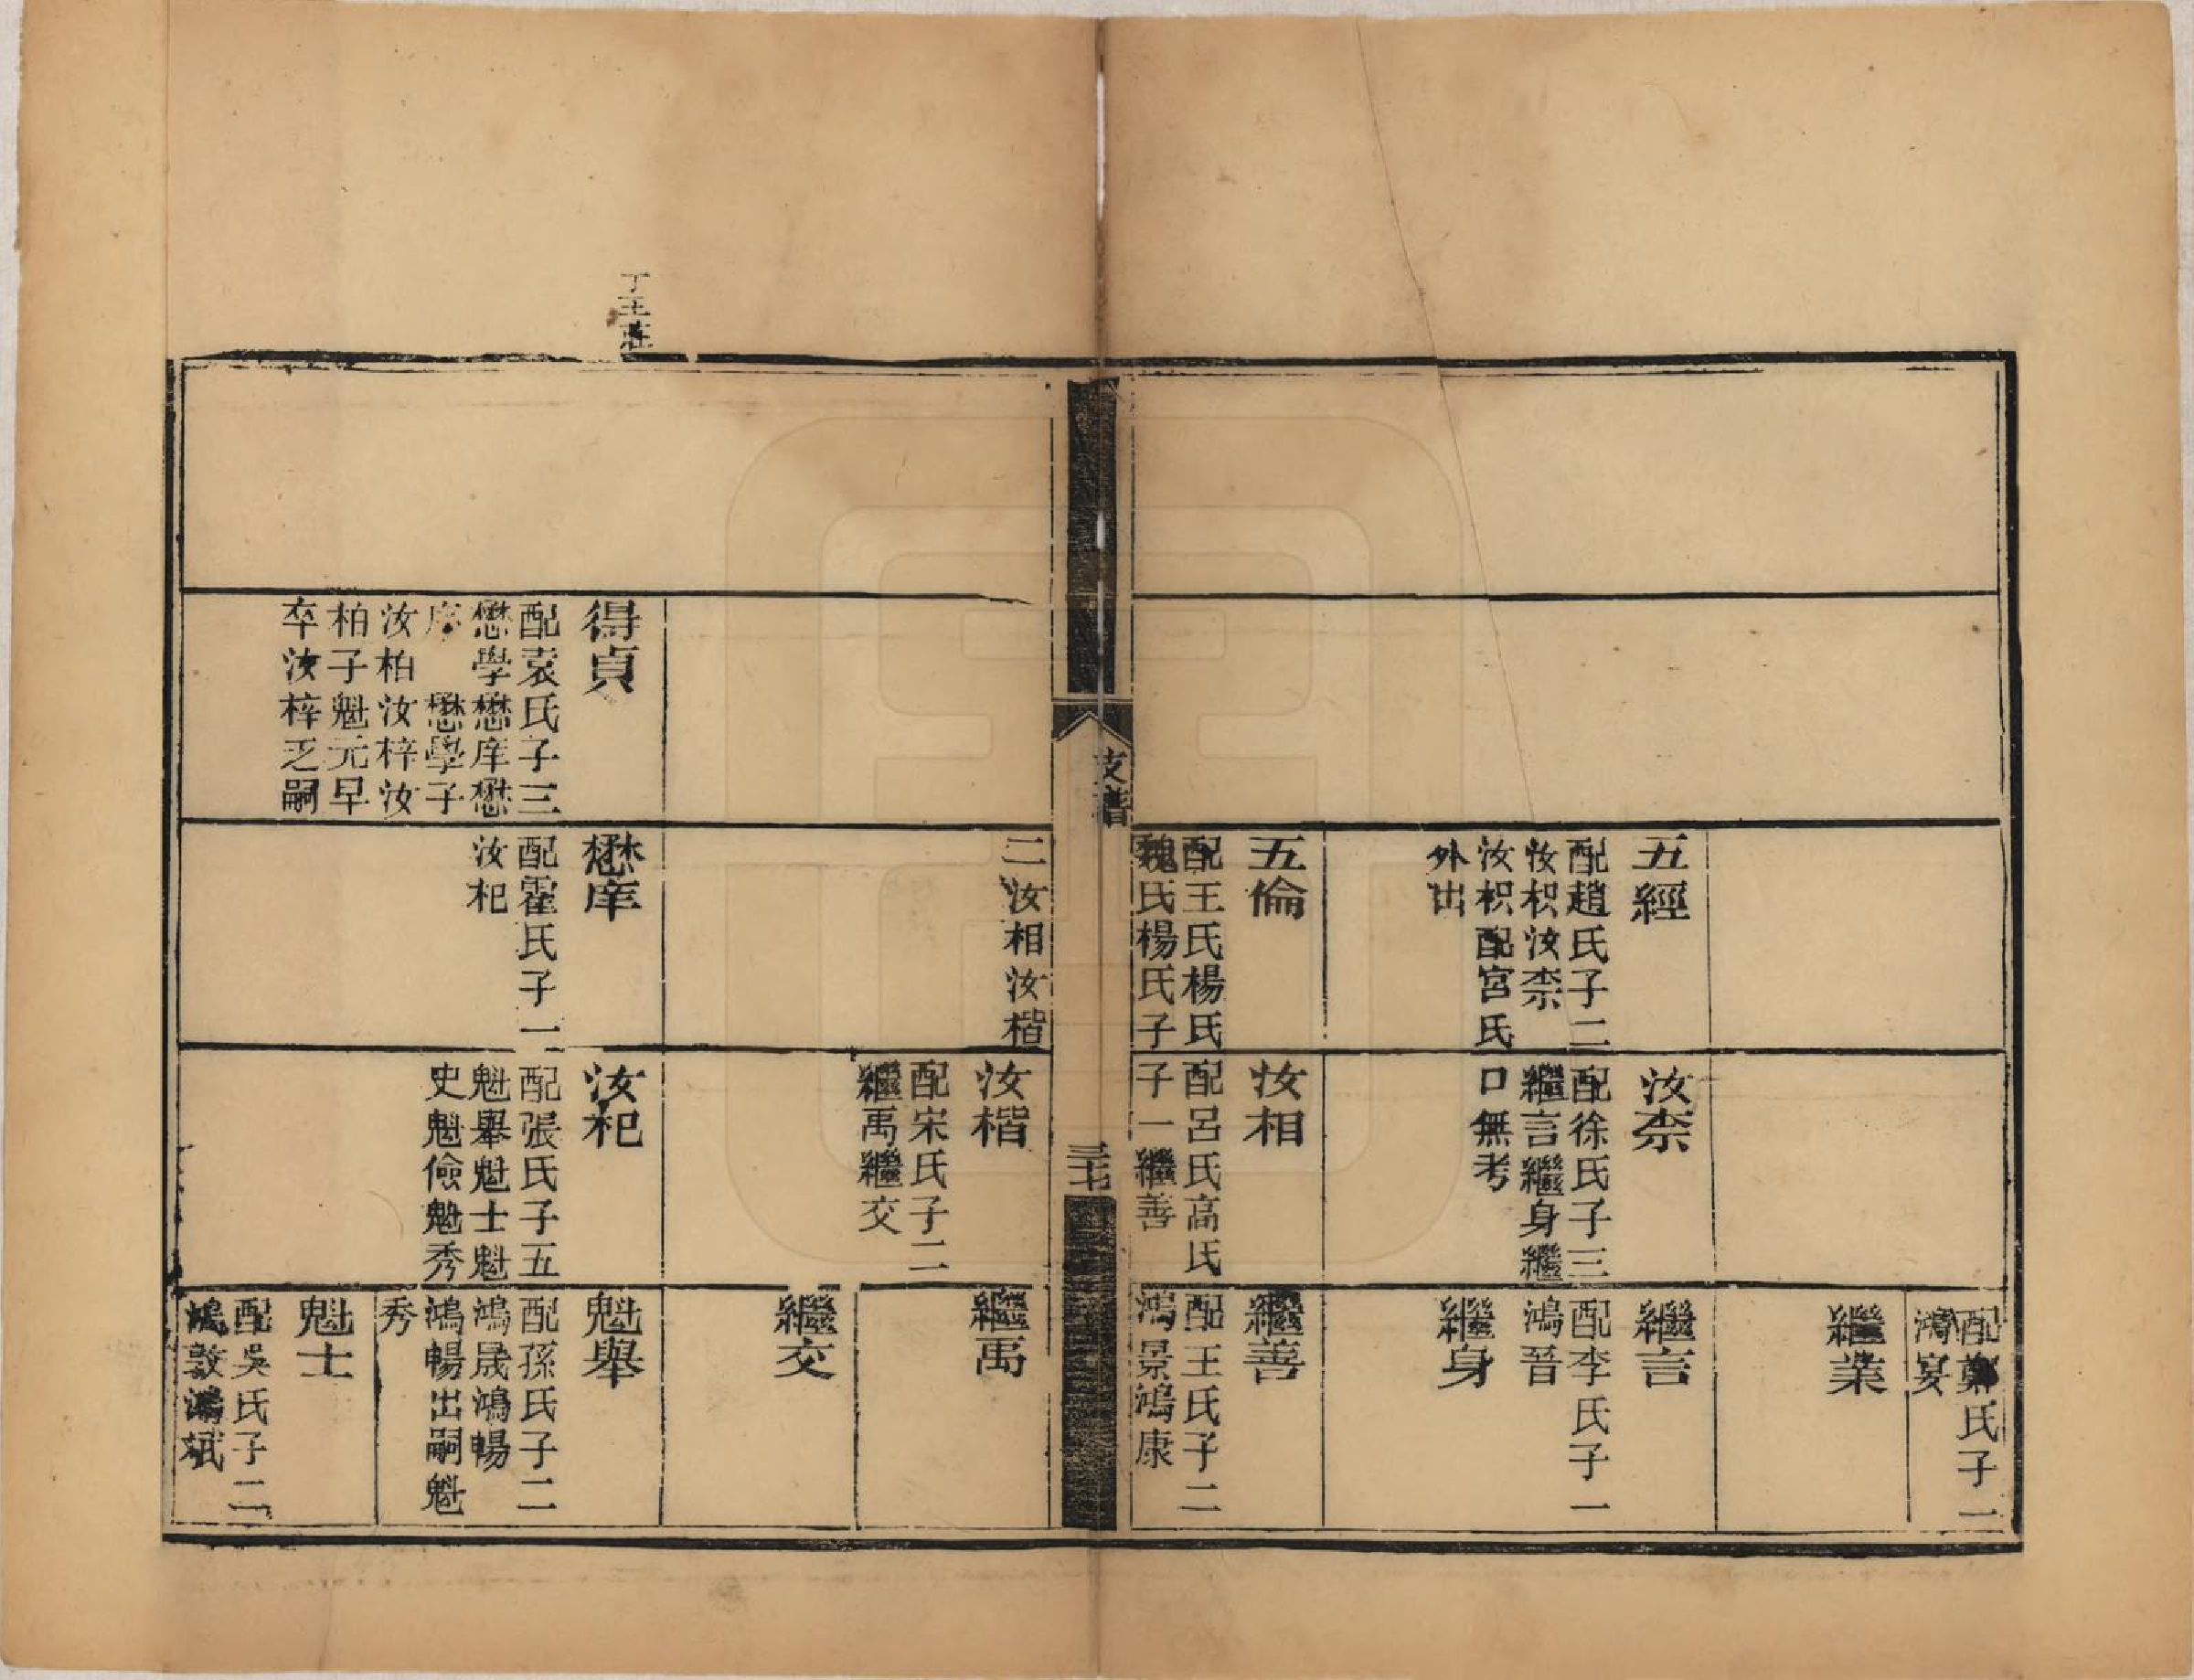 五經
配趙氏子二
汝枳汝柰
汝枳配宮氏
外出
五倫
配王氏楊氏
魏氏楊氏子
汝柰
配徐氏子三
繼言繼身繼
口無考
汝相
配呂氏高氏
子一繼善
配鄭氏子一
鴻宴
繼業
繼言
配李氏子一
鴻晉
繼身
繼善
配王氏子二
鴻景鴻康
支譜
三七
丁王莊
得貞
配袁氏子三
懋學懋庠懋
序 懋學子
汝柏汝梓汝
柏子魁元早
卒汝梓乏嗣
二汝相汝楷
懋庠
配霍氏子一
汝杞
汝楷
配宋氏子二
繼禹繼交
汝杞
配張氏子五
魁舉魁士魁
史魁儉魁秀
繼禹
繼交
魁舉
配孫氏子二
鴻晟鴻暢
鴻暢出嗣魁
秀
魁士
配吳氏子二
鴻敦鴻斌